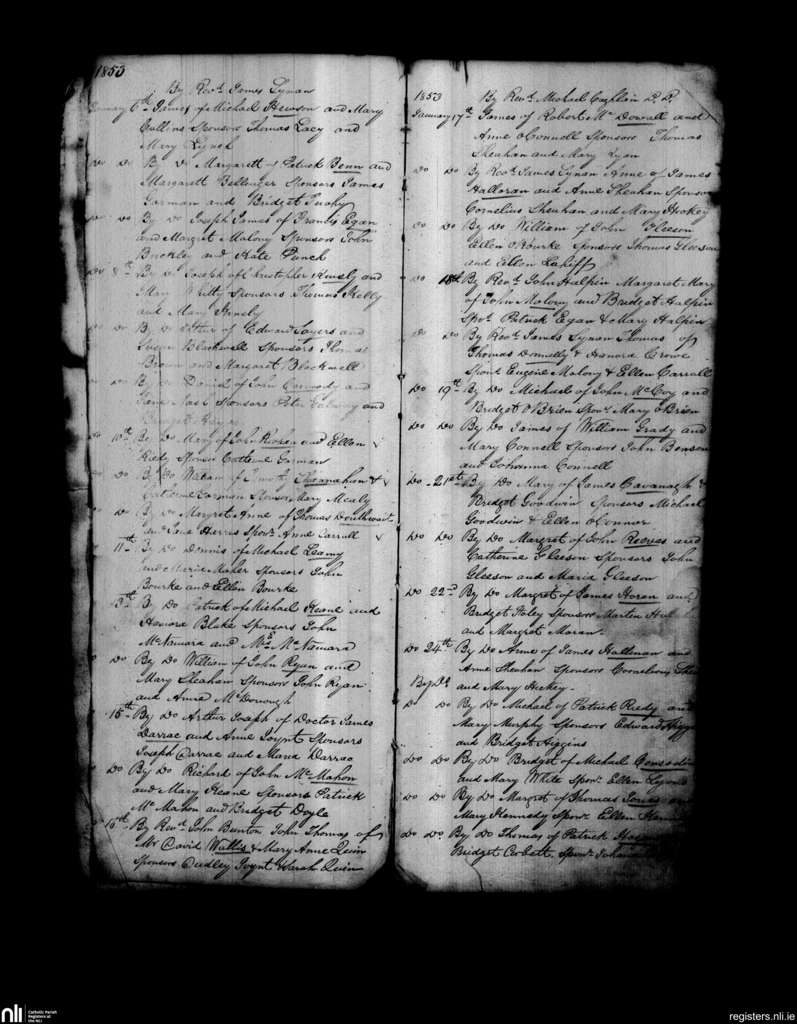 1853
By Revd. James Synan
January 6th James of Michael Hewson and Mary
Collins Sponsors Thomas Lacy and
Mary Lynch
Do Do By Do Margarett of Patrick Benn and
Margarett Bellinger Sponsors James
Gorman and Bridget Tuohy
Do By Do Joseph James of Francis Egan
and Margret Malony Sponsors John
Buckley and Kate Punch
Do 8th By Do Joseph of Christopher and
Mary Whitty Sponsors Thomas Kelly
and Mary
Do Do By Do Esther of Edward Sayers and
Susan Blackwell Sponsors Thomas
Brown and Margaret Blackwell
Do By Do Daniel of John Carmody and
Jane Nash Sponsors Peter and
Bridget
Do 10th By Do Mary of John and Ellen
Sponsor Catherine Gorman
Do By Do William of Timothy &
Catherine Gorman Sponsor Mary Mealy
Do By Do Margret Anne of Thomas Douthwait
and Jane Harris Sponr. Anne Carroll
11th By Do Dennis of Michael Leamy
and Maria Maher Sponsors John
Bourke and Ellen Bourke
13th By Do Patrick of Michael Keane and
Honora Blake Sponsors John
McNamara and Mrs McNamara
Do By Do William of John Ryan and
Mary Sheahan Sponsors John Ryan
and Anne McDonough
15th By Do Arthur Joseph of Doctor James
Darrac and Anne Joynt Sponsors
Joseph Darrac and Maria Darrac
Do By Do Richard of John McMahon
and Mary Keane Sponsors Patrick
McMahon and Bridget Doyle
16th By Revd. John Bunton John Thomas of
Mr David Wallis & Mary Anne Quin
Sponsors Dudley Joynt & Sarah Quin
1853 By Revd. Michael Coghlin P.P.
January 17th James of Robert McDowall and
Anne O'Connell Sponsors Thomas
Sheahan and Mary Lyon
Do Do By Revd. James Synan Anne of James
Halloran and Anne Sheahan Sponsors
Cornelius Sheahan and Mary Hickey
Do Do By Do William of John Gleeson
Ellen O'Rourke Sponsors Thomas Gleeson
and Ellen Lahiff
Do 18th By Revd. John Halpin Margaret Mary
of John Malony and Bridget Halpin
Sprs. Patrick Egan & Mary Halpin
Do Do By Revd. James Synan Thomas of
Thomas Donnelly & Honora Crowe
Sponrs Eugene Malony & Ellen Carroll
Do 19th By Do Michael of John McCoy and
Bridget O'Brien Sponr. Mary O'Brien
Do Do By Do James of William Grady and
Mary Connell Sponsors John Benson
and Johanna Connell
Do 21st By Do Mary of James Cavanagh &
Bridget Goodwin Sponsors Michael
Goodwin & Ellen O'Connor
Do Do By Do Margret of John Reeves and
Catherine Gleeson Sponsors John
Gleeson and Maria Gleeson
Do 22nd By Do Margret of James Horan and
Bridget Foley Sponsors Martin
and Margret Moran
Do 24th By Do Anne of James Hallinan and
Anne Sheahan Sponsors Cornelious
By Do and Mary Hickey
Do Do By Do Michael of Patrick Reedy and
Mary Murphy Sponsors Edward
and Bridget Higgins
Do Do By Do Bridget of Michael
and Mary White Sponr. Ellen Lyons
Do Do By Do Margret of Thomas Jones and
Mary Kennedy Sponr. Ellen
Do Do By Do Thomas of Patrick
Bridget Corbett Sponr.
nli
Catholic Parish
Registers at
the NLI
registers.nli.ie